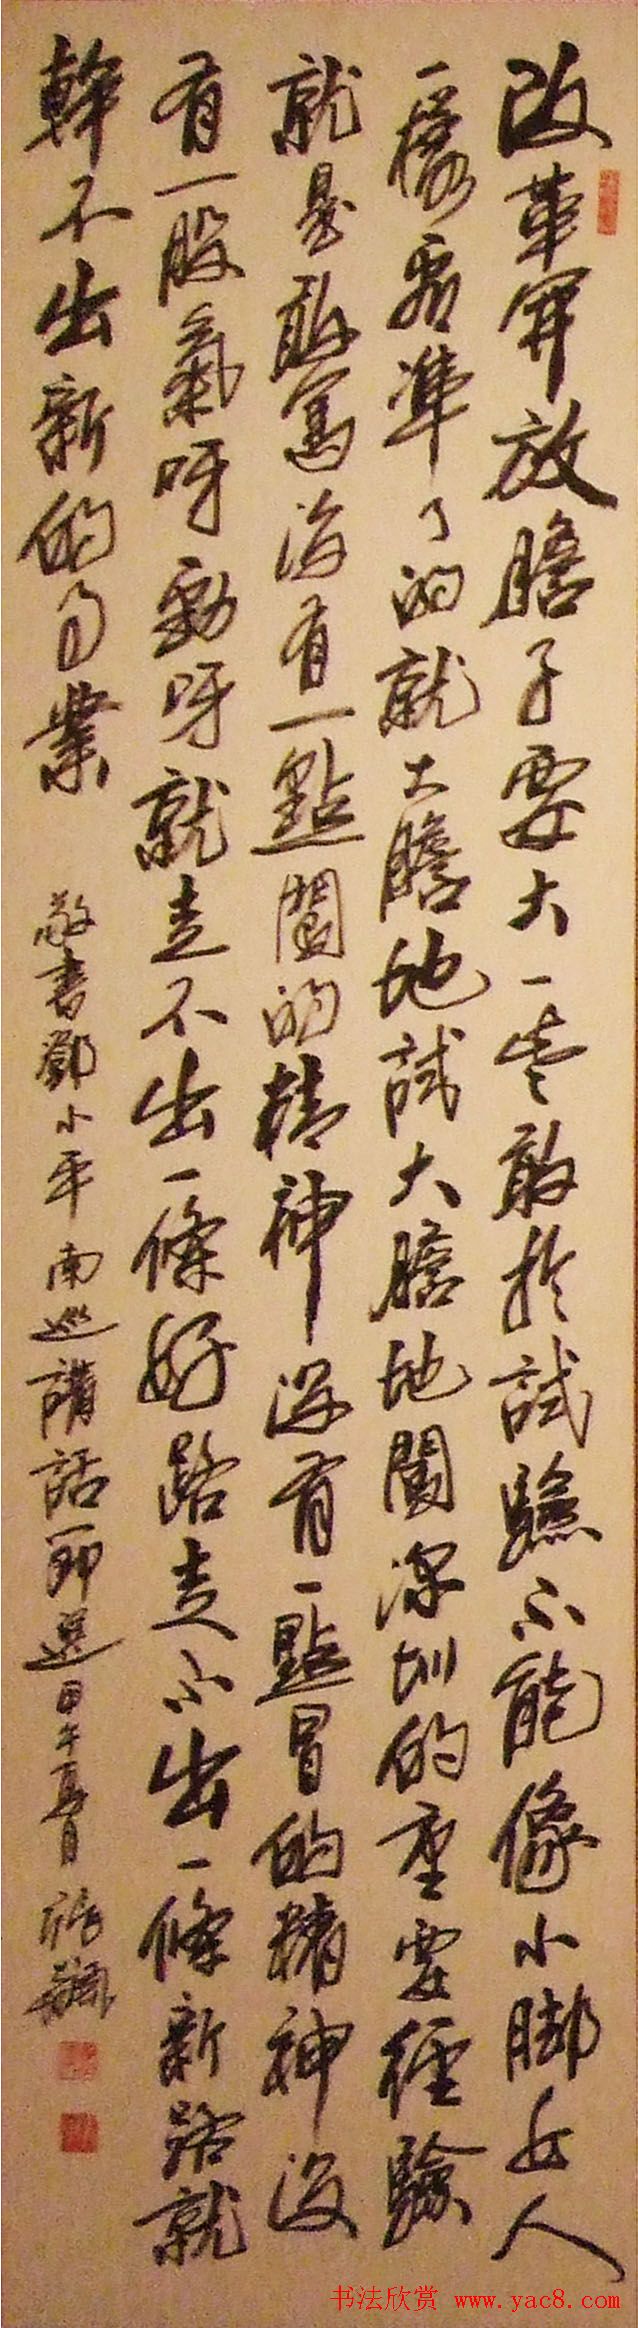 改革開放膽子要大一些敢於試驗不能像小腳女人
一樣看準了的就大膽地試大膽地闖深圳的重要經驗
就是敢闖沒有一點闖的精神沒有一點冒的精神沒
有一股氣呀勁呀就走不出一條好路走不出一條新路就
幹不出新的事業
敬書鄧小平南巡講話節選甲午夏月
书法欣赏 www.yac8.com